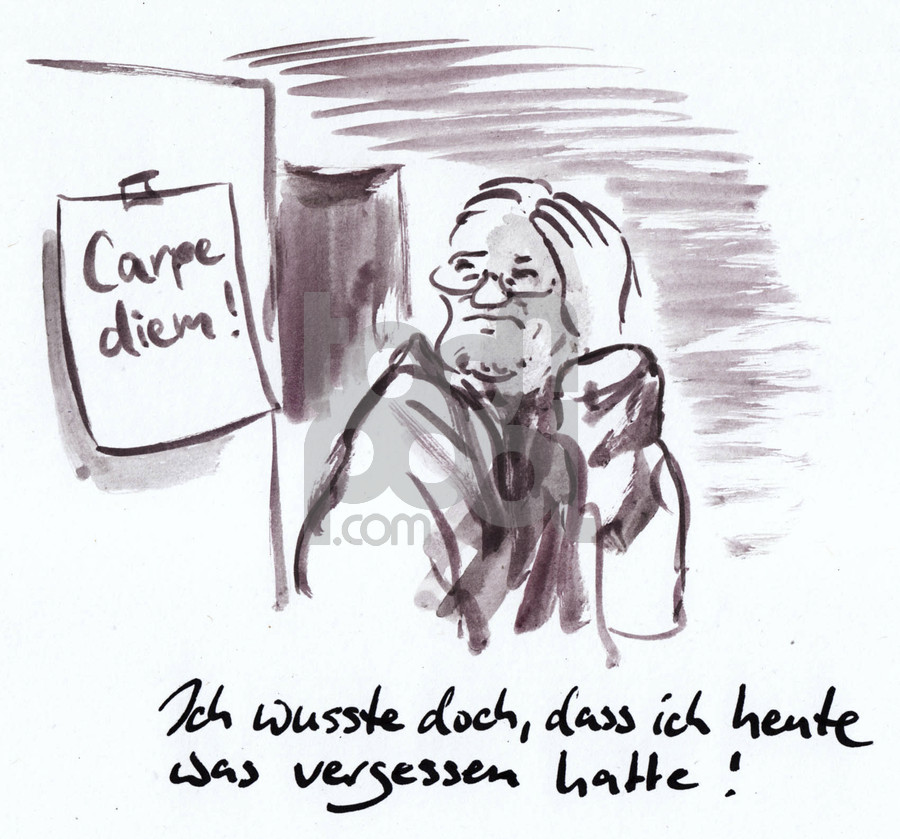 Carpe
diem!
toon
pool
.com
Ich wusste doch, dass ich heute
was vergessen hatte!